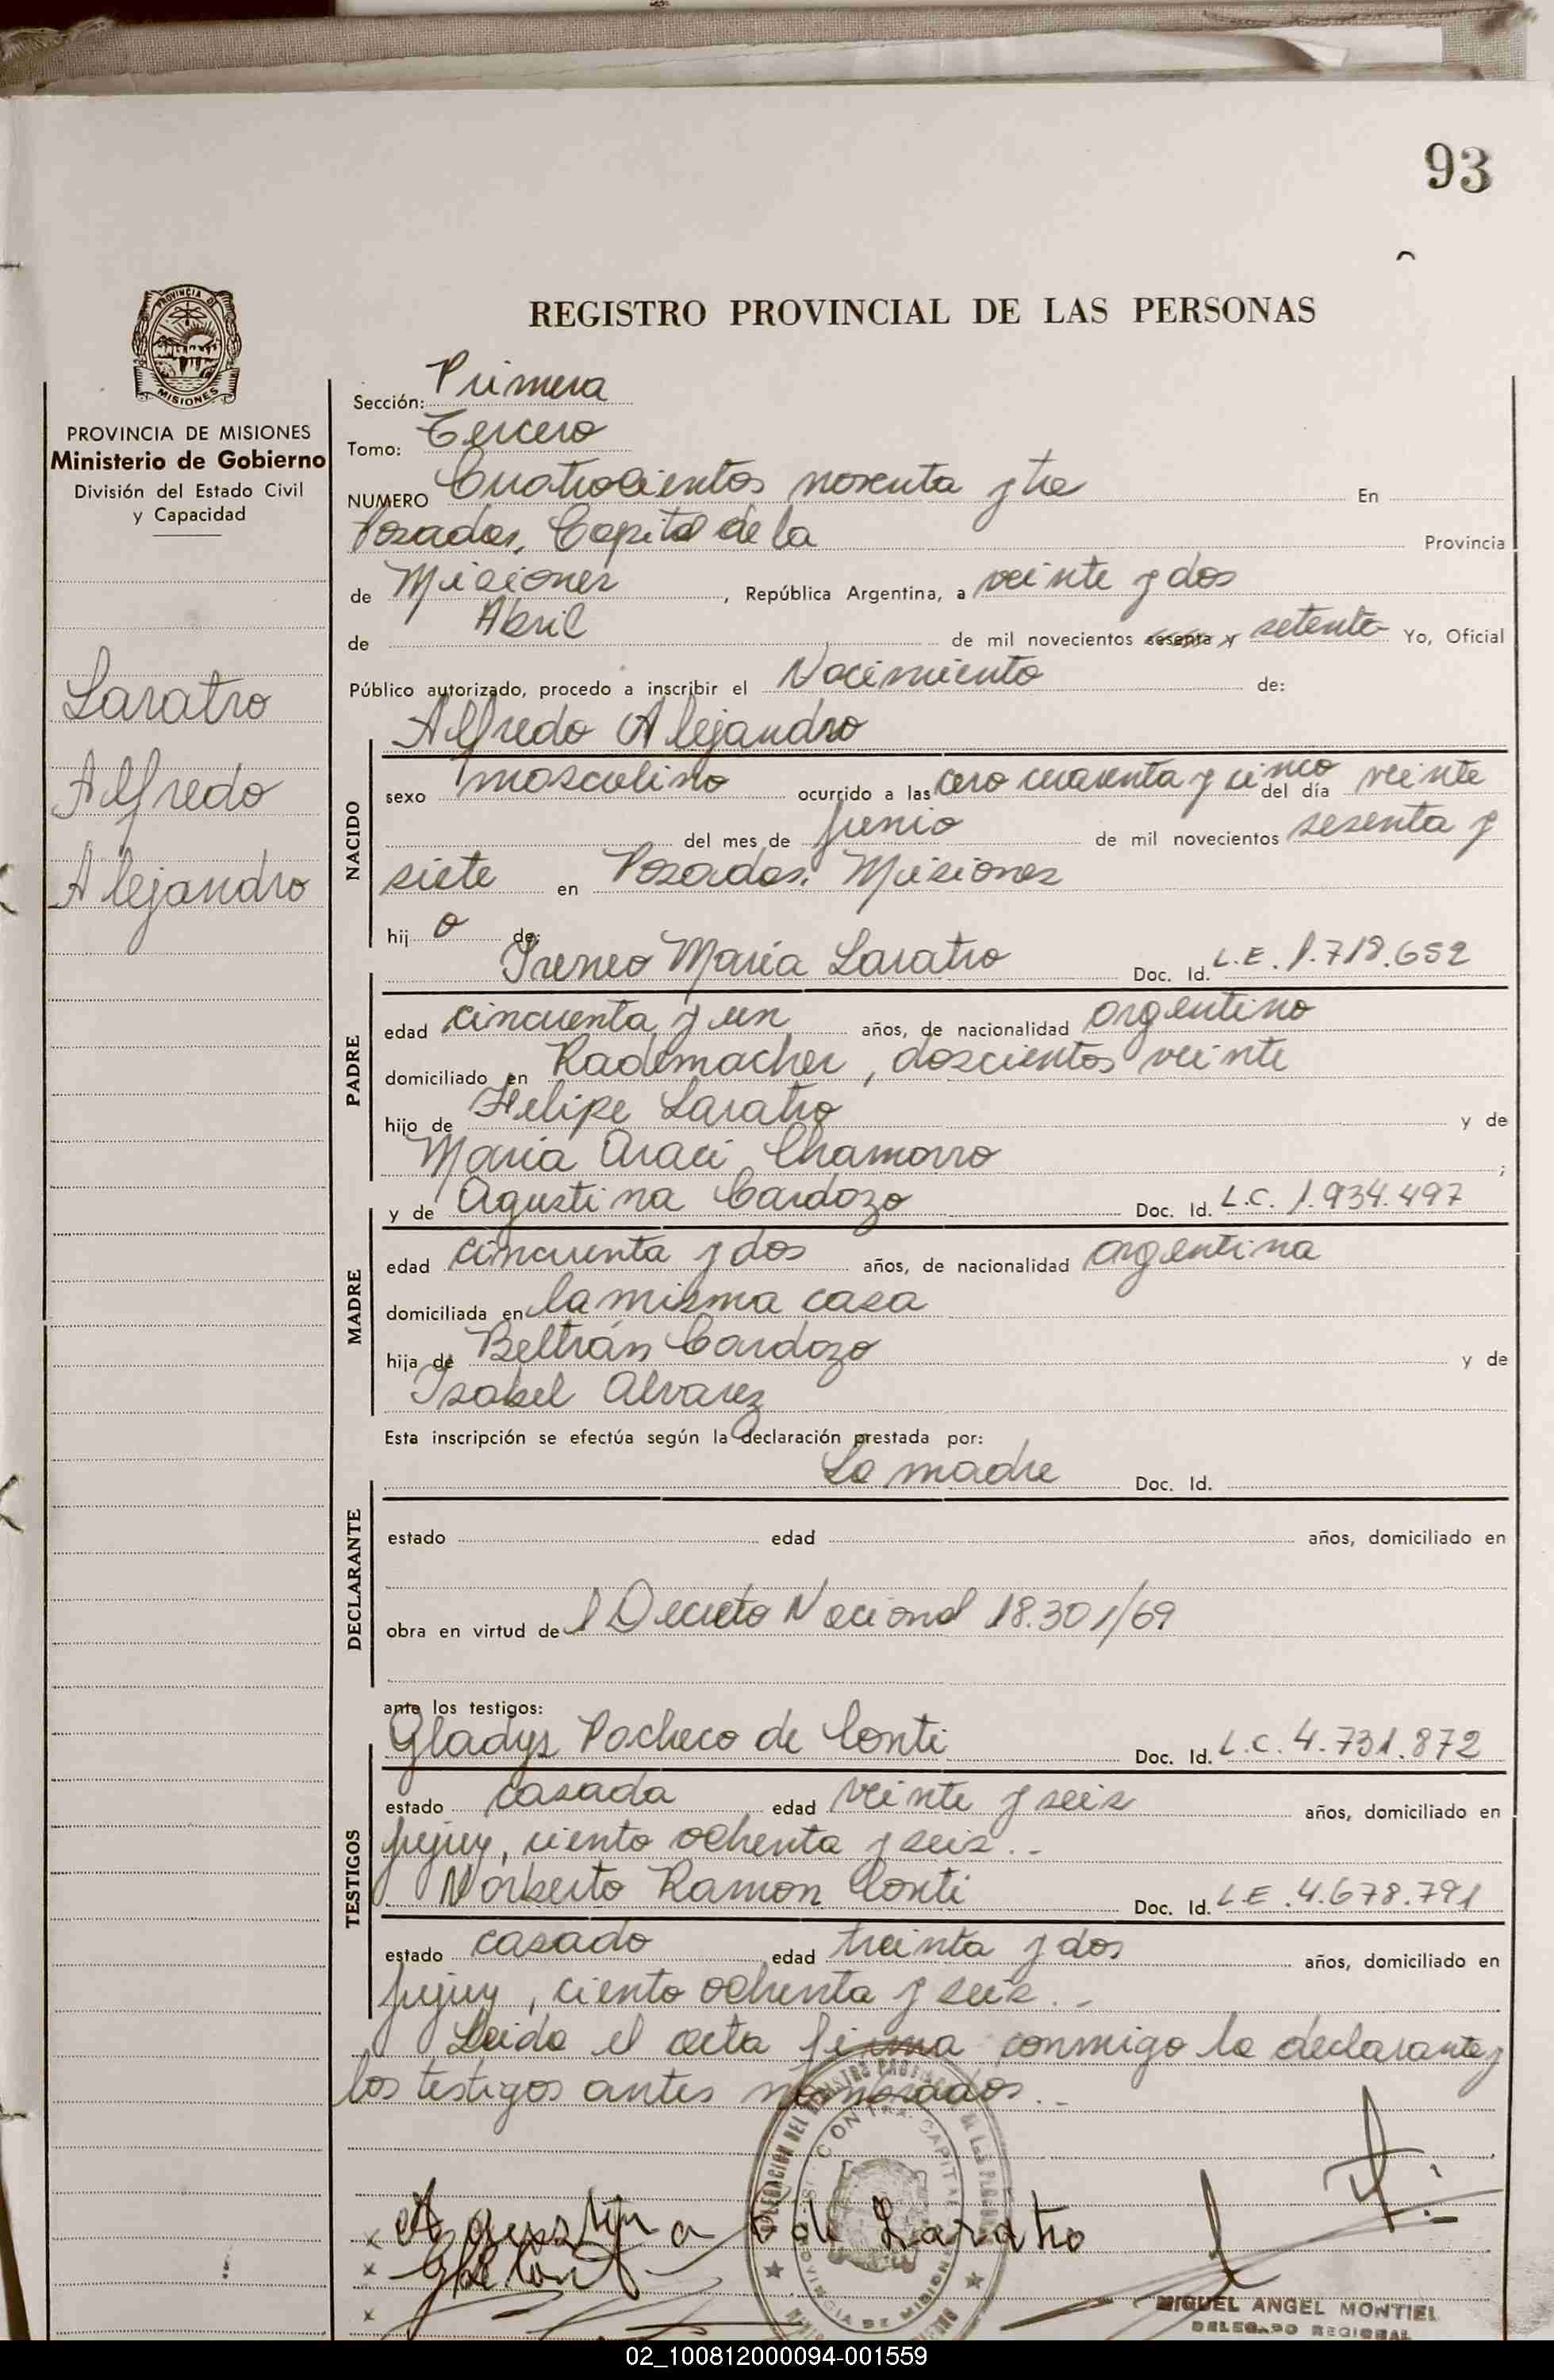 93
REGISTRO PROVINCIAL DE LAS PERSONAS
MISIONES
PROVINCIA DE MISIONES
Ministerio de Gobierno
División del Estado Civil
y Capacidad
Laratro
Alfredo
Alejandro
Sección: Primera
Tomo: Tercero
NUMERO Cuatrocientos noventa y tre En
Posadas, Capital de la Provincia
de Misiones, República Argentina, a veinte y dos
de Abril de mil novecientos sesenta y setenta Yo, Oficial
Público autorizado, procedo a inscribir el Nacimiento de:
Alfredo Alejandro
NACIDO
sexo masculino ocurrido a las cero cuarenta y cinco del día veinte
del mes de Junio de mil novecientos sesenta y
siete en Posadas, Misiones
hij o de:
Ireneo María Laratro Doc. Id. L.E. 1.718.652
PADRE
edad cincuenta y un años, de nacionalidad argentino
domiciliado en Rademacher, doscientos veinte
hijo de Felipe Laratro y de
María Araci Chamorro ;
y de Agustina Cardozo Doc. Id. L.C. 1.934.497
MADRE
edad cincuenta y dos años, de nacionalidad argentina
domiciliada en la misma casa
hija de Beltrán Cardozo y de
Isabel Alvarez
Esta inscripción se efectúa según la declaración prestada por:
La madre Doc. Id.
DECLARANTE
estado edad años, domiciliado en
obra en virtud de l Decreto Nacional 18.301/69
ante los testigos:
Gladys Pacheco de Conti Doc. Id. L.C. 4.731.872
TESTIGOS
estado casada edad veinte y seis años, domiciliado en
Jujuy, ciento ochenta y seis.-
Norberto Ramon Conti Doc. Id. L.E. 4.678.791
estado casado edad treinta y dos años, domiciliado en
Jujuy, ciento ochenta y seis.-
Leida el acta firma conmigo la declarante y
los testigos antes nombrados.-
x Agustina C de Laratro
x
x
MIGUEL ANGEL MONTIEL
DELEGADO REGIONAL
02_100812000094-001559